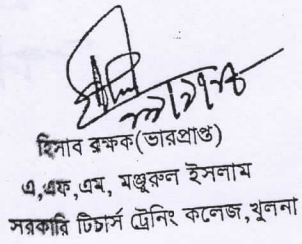 হিসাব রক্ষক(ভারপ্রাপ্ত)
এ,এফ,এম, মঞ্জুরুল ইসলাম
সরকারি টিচার্স ট্রেনিং কলেজ,খুলনা